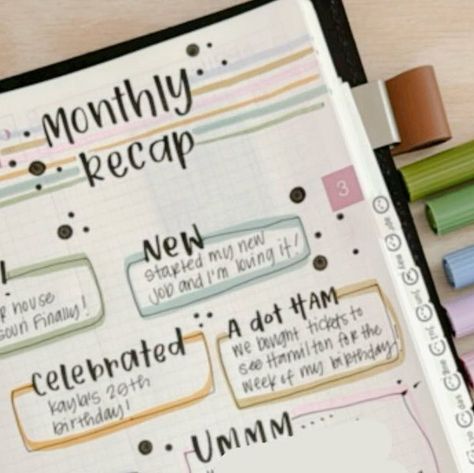 Monthly
Recap
3
NEW
started my new
job and I'm loving it!
house
Finally!
A dot HAM
we bought tickets to
see Hamilton for the
week of my birthday
Celebrated
Kayla's 29th
birthday!
UMMM